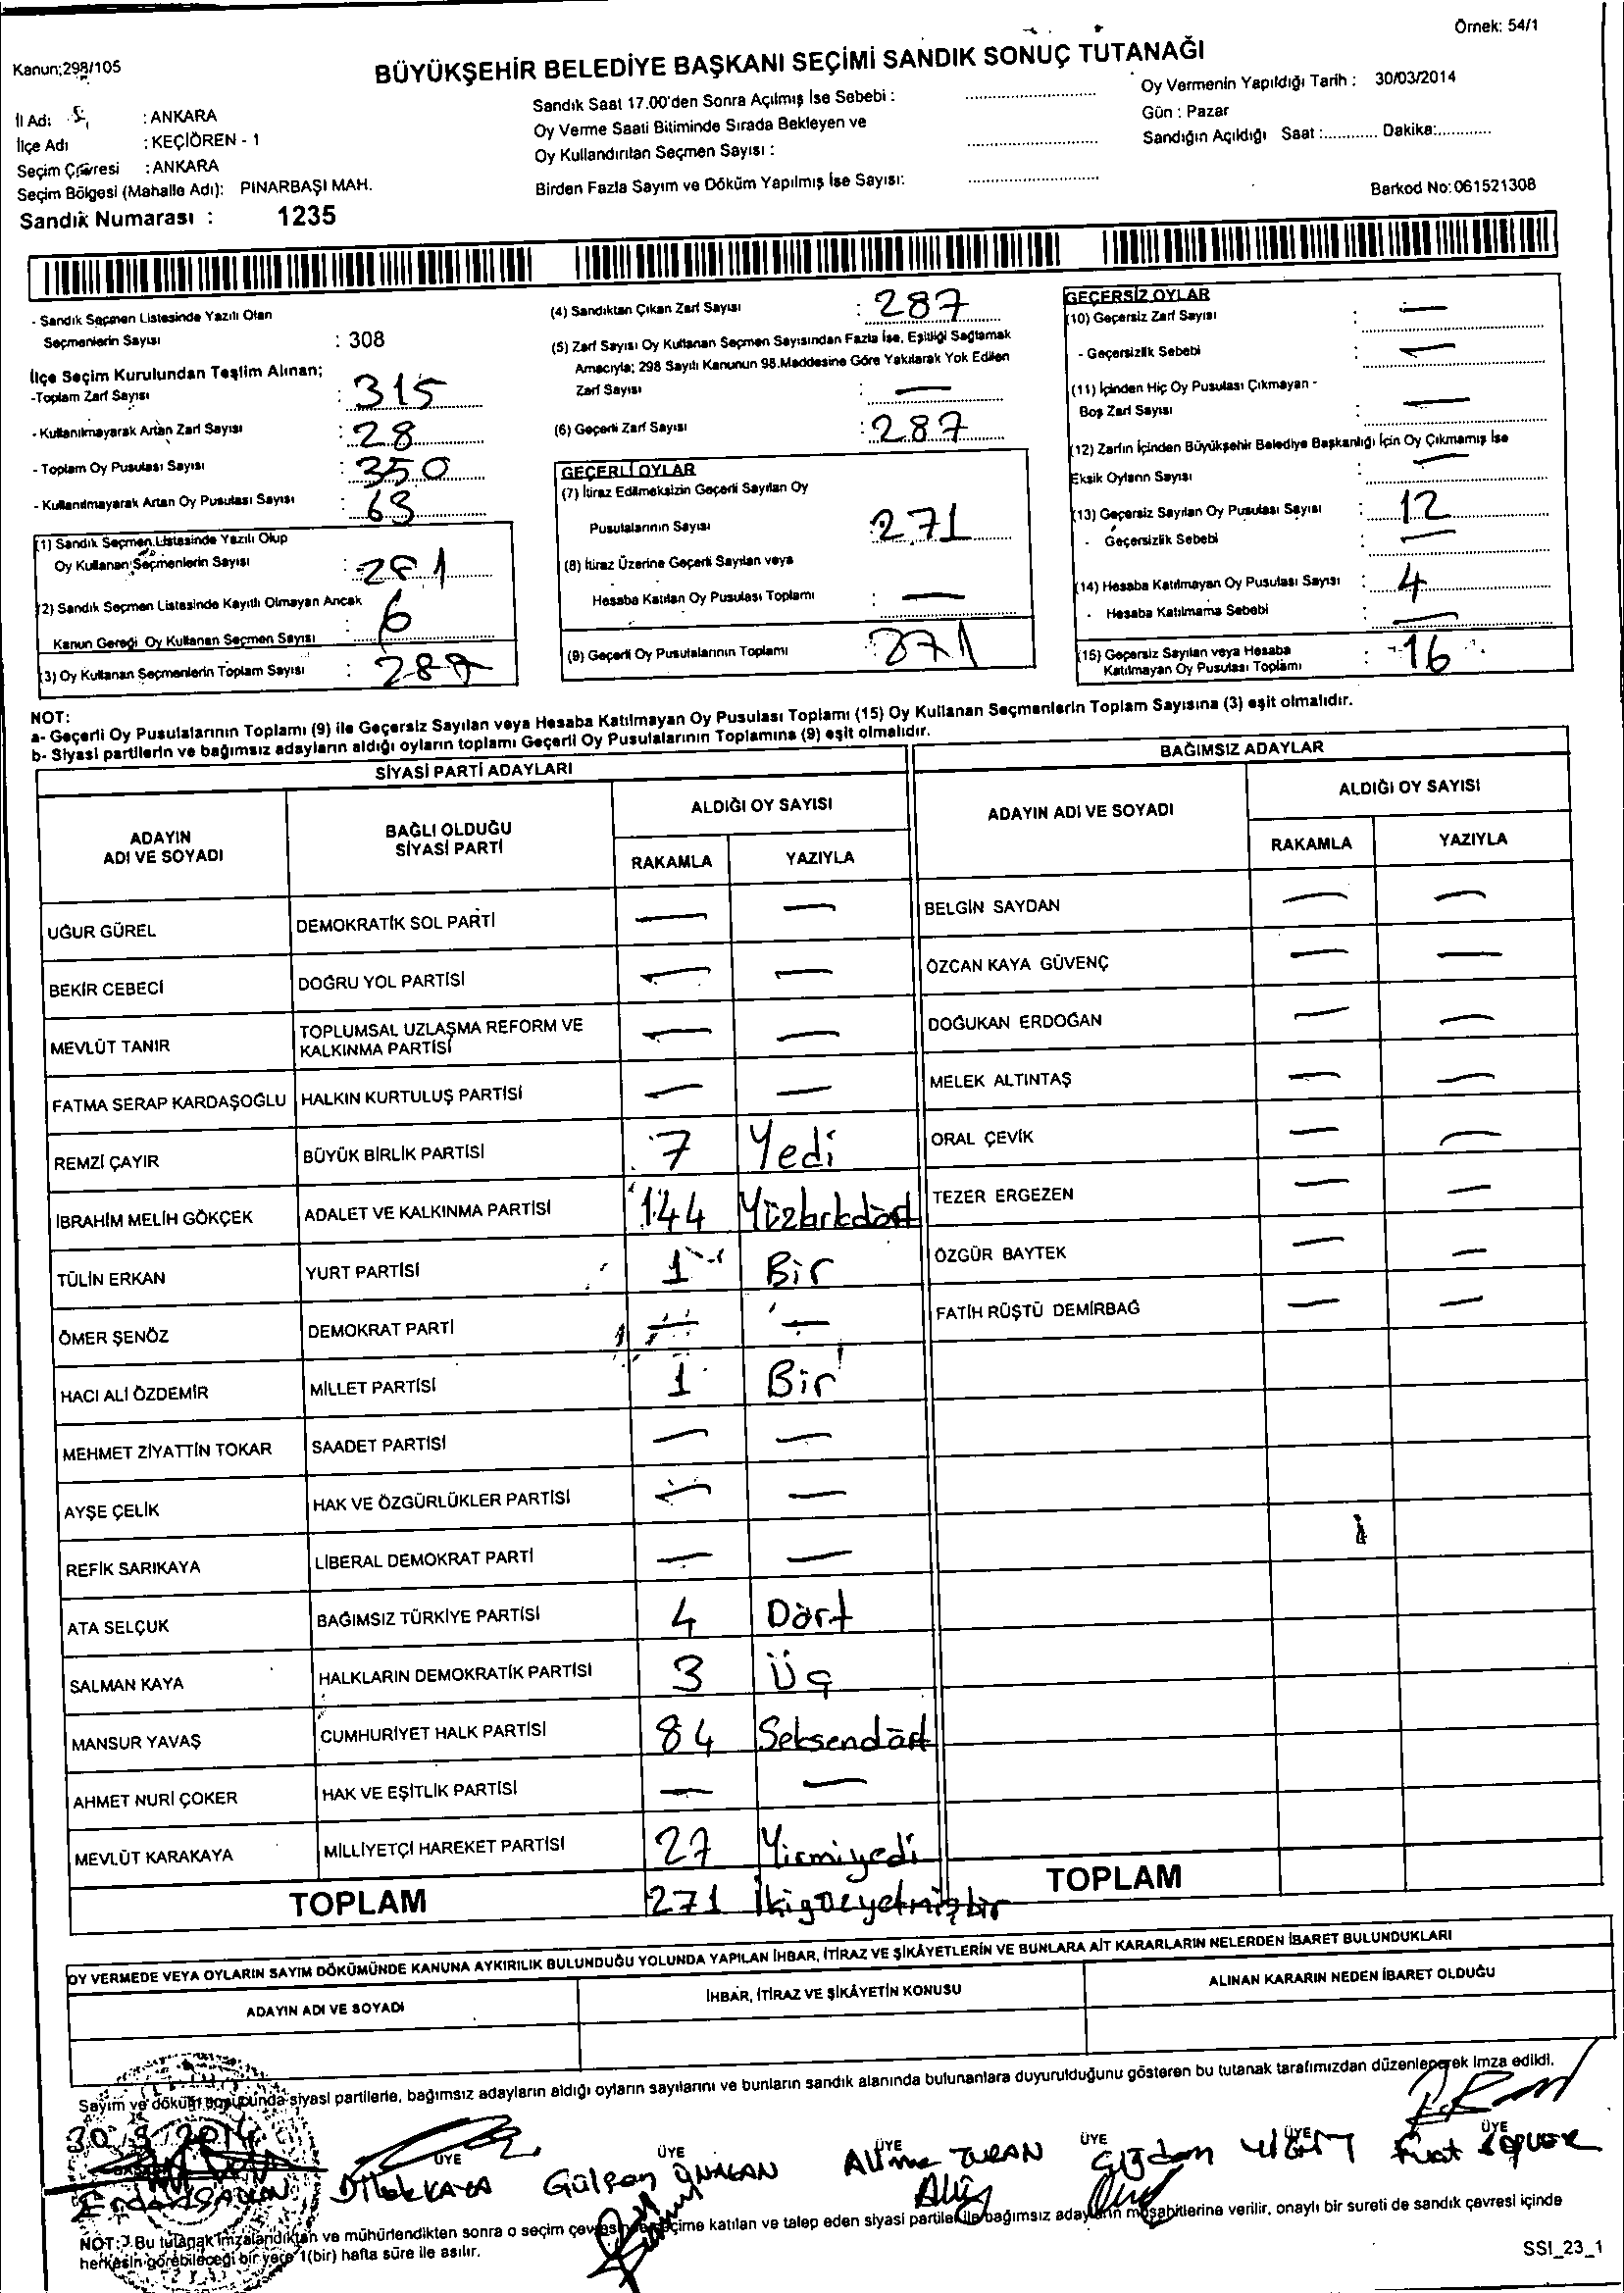 Örnek: 54/1
Kanun;298/105
BÜYÜKŞEHİR BELEDİYE BAŞKANI SEÇİMİ SANDIK SONUÇ TUTANAĞI
İl Adı : ANKARA
İlçe Adı : KEÇİÖREN - 1
Seçim Çevresi : ANKARA
Seçim Bölgesi (Mahalle Adı): PINARBAŞI MAH.
Sandık Numarası : 1235
Sandık Saat 17.00'den Sonra Açılmış İse Sebebi :
Oy Verme Saati Bitiminde Sırada Bekleyen ve
Oy Kullandırılan Seçmen Sayısı :
Birden Fazla Sayım ve Döküm Yapılmış İse Sayısı:
Oy Vermenin Yapıldığı Tarih : 30/03/2014
Gün : Pazar
Sandığın Açıldığı Saat :............ Dakika:............
Barkod No:061521308
- Sandık Seçmen Listesinde Yazılı Olan
Seçmenlerin Sayısı : 308
İlçe Seçim Kurulundan Teslim Alınan;
-Toplam Zarf Sayısı : 315
- Kullanılmayarak Artan Zarf Sayısı : 28
- Toplam Oy Pusulası Sayısı : 350
- Kullanılmayarak Artan Oy Pusulası Sayısı : 63
(1) Sandık Seçmen Listesinde Yazılı Olup
Oy Kullanan Seçmenlerin Sayısı : 281
(2) Sandık Seçmen Listesinde Kayıtlı Olmayan Ancak
Kanun Gereği Oy Kullanan Seçmen Sayısı : 6
(3) Oy Kullanan Seçmenlerin Toplam Sayısı : 287
(4) Sandıktan Çıkan Zarf Sayısı : 287
(5) Zarf Sayısı Oy Kullanan Seçmen Sayısından Fazla İse, Eşitliği Sağlamak
Amacıyla; 298 Sayılı Kanunun 98.Maddesine Göre Yakılarak Yok Edilen
Zarf Sayısı : —
(6) Geçerli Zarf Sayısı : 287
GEÇERLİ OYLAR
(7) İtiraz Edilmeksizin Geçerli Sayılan Oy
Pusulalarının Sayısı : 271
(8) İtiraz Üzerine Geçerli Sayılan veya
Hesaba Katılan Oy Pusulası Toplamı : —
(9) Geçerli Oy Pusulalarının Toplamı : 271
GEÇERSİZ OYLAR
(10) Geçersiz Zarf Sayısı : —
- Geçersizlik Sebebi : —
(11) İçinden Hiç Oy Pusulası Çıkmayan -
Boş Zarf Sayısı : —
(12) Zarfın İçinden Büyükşehir Belediye Başkanlığı İçin Oy Çıkmamış İse
Eksik Oyların Sayısı : —
(13) Geçersiz Sayılan Oy Pusulası Sayısı : 12
- Geçersizlik Sebebi : —
(14) Hesaba Katılmayan Oy Pusulası Sayısı : 4
- Hesaba Katılmama Sebebi : —
(15) Geçersiz Sayılan veya Hesaba
Katılmayan Oy Pusulası Toplamı : 16
NOT:
a- Geçerli Oy Pusulalarının Toplamı (9) ile Geçersiz Sayılan veya Hesaba Katılmayan Oy Pusulası Toplamı (15) Oy Kullanan Seçmenlerin Toplam Sayısına (3) eşit olmalıdır.
b- Siyasi partilerin ve bağımsız adayların aldığı oyların toplamı Geçerli Oy Pusulalarının Toplamına (9) eşit olmalıdır.
SİYASİ PARTİ ADAYLARI
ADAYIN ADI VE SOYADI BAĞLI OLDUĞU SİYASİ PARTİ ALDIĞI OY SAYISI
RAKAMLA YAZIYLA
UĞUR GÜREL DEMOKRATİK SOL PARTİ — —
BEKİR CEBECİ DOĞRU YOL PARTİSİ — —
MEVLÜT TANIR TOPLUMSAL UZLAŞMA REFORM VE KALKINMA PARTİSİ — —
FATMA SERAP KARDAŞOĞLU HALKIN KURTULUŞ PARTİSİ — —
REMZİ ÇAYIR BÜYÜK BİRLİK PARTİSİ 7 Yedi
İBRAHİM MELİH GÖKÇEK ADALET VE KALKINMA PARTİSİ 144 Yüzkırkdört
TÜLİN ERKAN YURT PARTİSİ 1 Bir
ÖMER ŞENÖZ DEMOKRAT PARTİ — —
HACI ALİ ÖZDEMİR MİLLET PARTİSİ 1 Bir
MEHMET ZİYATTİN TOKAR SAADET PARTİSİ — —
AYŞE ÇELİK HAK VE ÖZGÜRLÜKLER PARTİSİ — —
REFİK SARIKAYA LİBERAL DEMOKRAT PARTİ — —
ATA SELÇUK BAĞIMSIZ TÜRKİYE PARTİSİ 4 Dört
SALMAN KAYA HALKLARIN DEMOKRATİK PARTİSİ 3 Üç
MANSUR YAVAŞ CUMHURİYET HALK PARTİSİ 84 Seksendört
AHMET NURİ ÇOKER HAK VE EŞİTLİK PARTİSİ — —
MEVLÜT KARAKAYA MİLLİYETÇİ HAREKET PARTİSİ 27 Yirmiyedi
TOPLAM 271 İkiyüzyetmişbir
BAĞIMSIZ ADAYLAR
ADAYIN ADI VE SOYADI ALDIĞI OY SAYISI
RAKAMLA YAZIYLA
BELGİN SAYDAN — —
ÖZCAN KAYA GÜVENÇ — —
DOĞUKAN ERDOĞAN — —
MELEK ALTINTAŞ — —
ORAL ÇEVİK — —
TEZER ERGEZEN — —
ÖZGÜR BAYTEK — —
FATİH RÜŞTÜ DEMİRBAĞ — —
TOPLAM
OY VERMEDE VEYA OYLARIN SAYIM DÖKÜMÜNDE KANUNA AYKIRILIK BULUNDUĞU YOLUNDA YAPILAN İHBAR, İTİRAZ VE ŞİKÂYETLERİN VE BUNLARA AİT KARARLARIN NELERDEN İBARET BULUNDUKLARI
ADAYIN ADI VE SOYADI İHBAR, İTİRAZ VE ŞİKÂYETİN KONUSU ALINAN KARARIN NEDEN İBARET OLDUĞU
Sayım ve döküm sonucunda siyasi partilerle, bağımsız adayların aldığı oyların sayılarını ve bunların sandık alanında bulunanlara duyurulduğunu gösteren bu tutanak tarafımızdan düzenlenerek imza edildi.
30 3 2014
ÜYE ÜYE ÜYE ÜYE ÜYE ÜYE
Dilek KAYA Gülşen Alime TURAN Çiğdem YİĞİT Fuat
NOT: Bu tutanak imzalandıktan ve mühürlendikten sonra o seçim çevresinde seçime katılan ve talep eden siyasi partiler ile bağımsız adayların müşahitlerine verilir, onaylı bir sureti de sandık çevresi içinde
herkesin görebileceği bir yere 1(bir) hafta süre ile asılır.
SSI_23_1